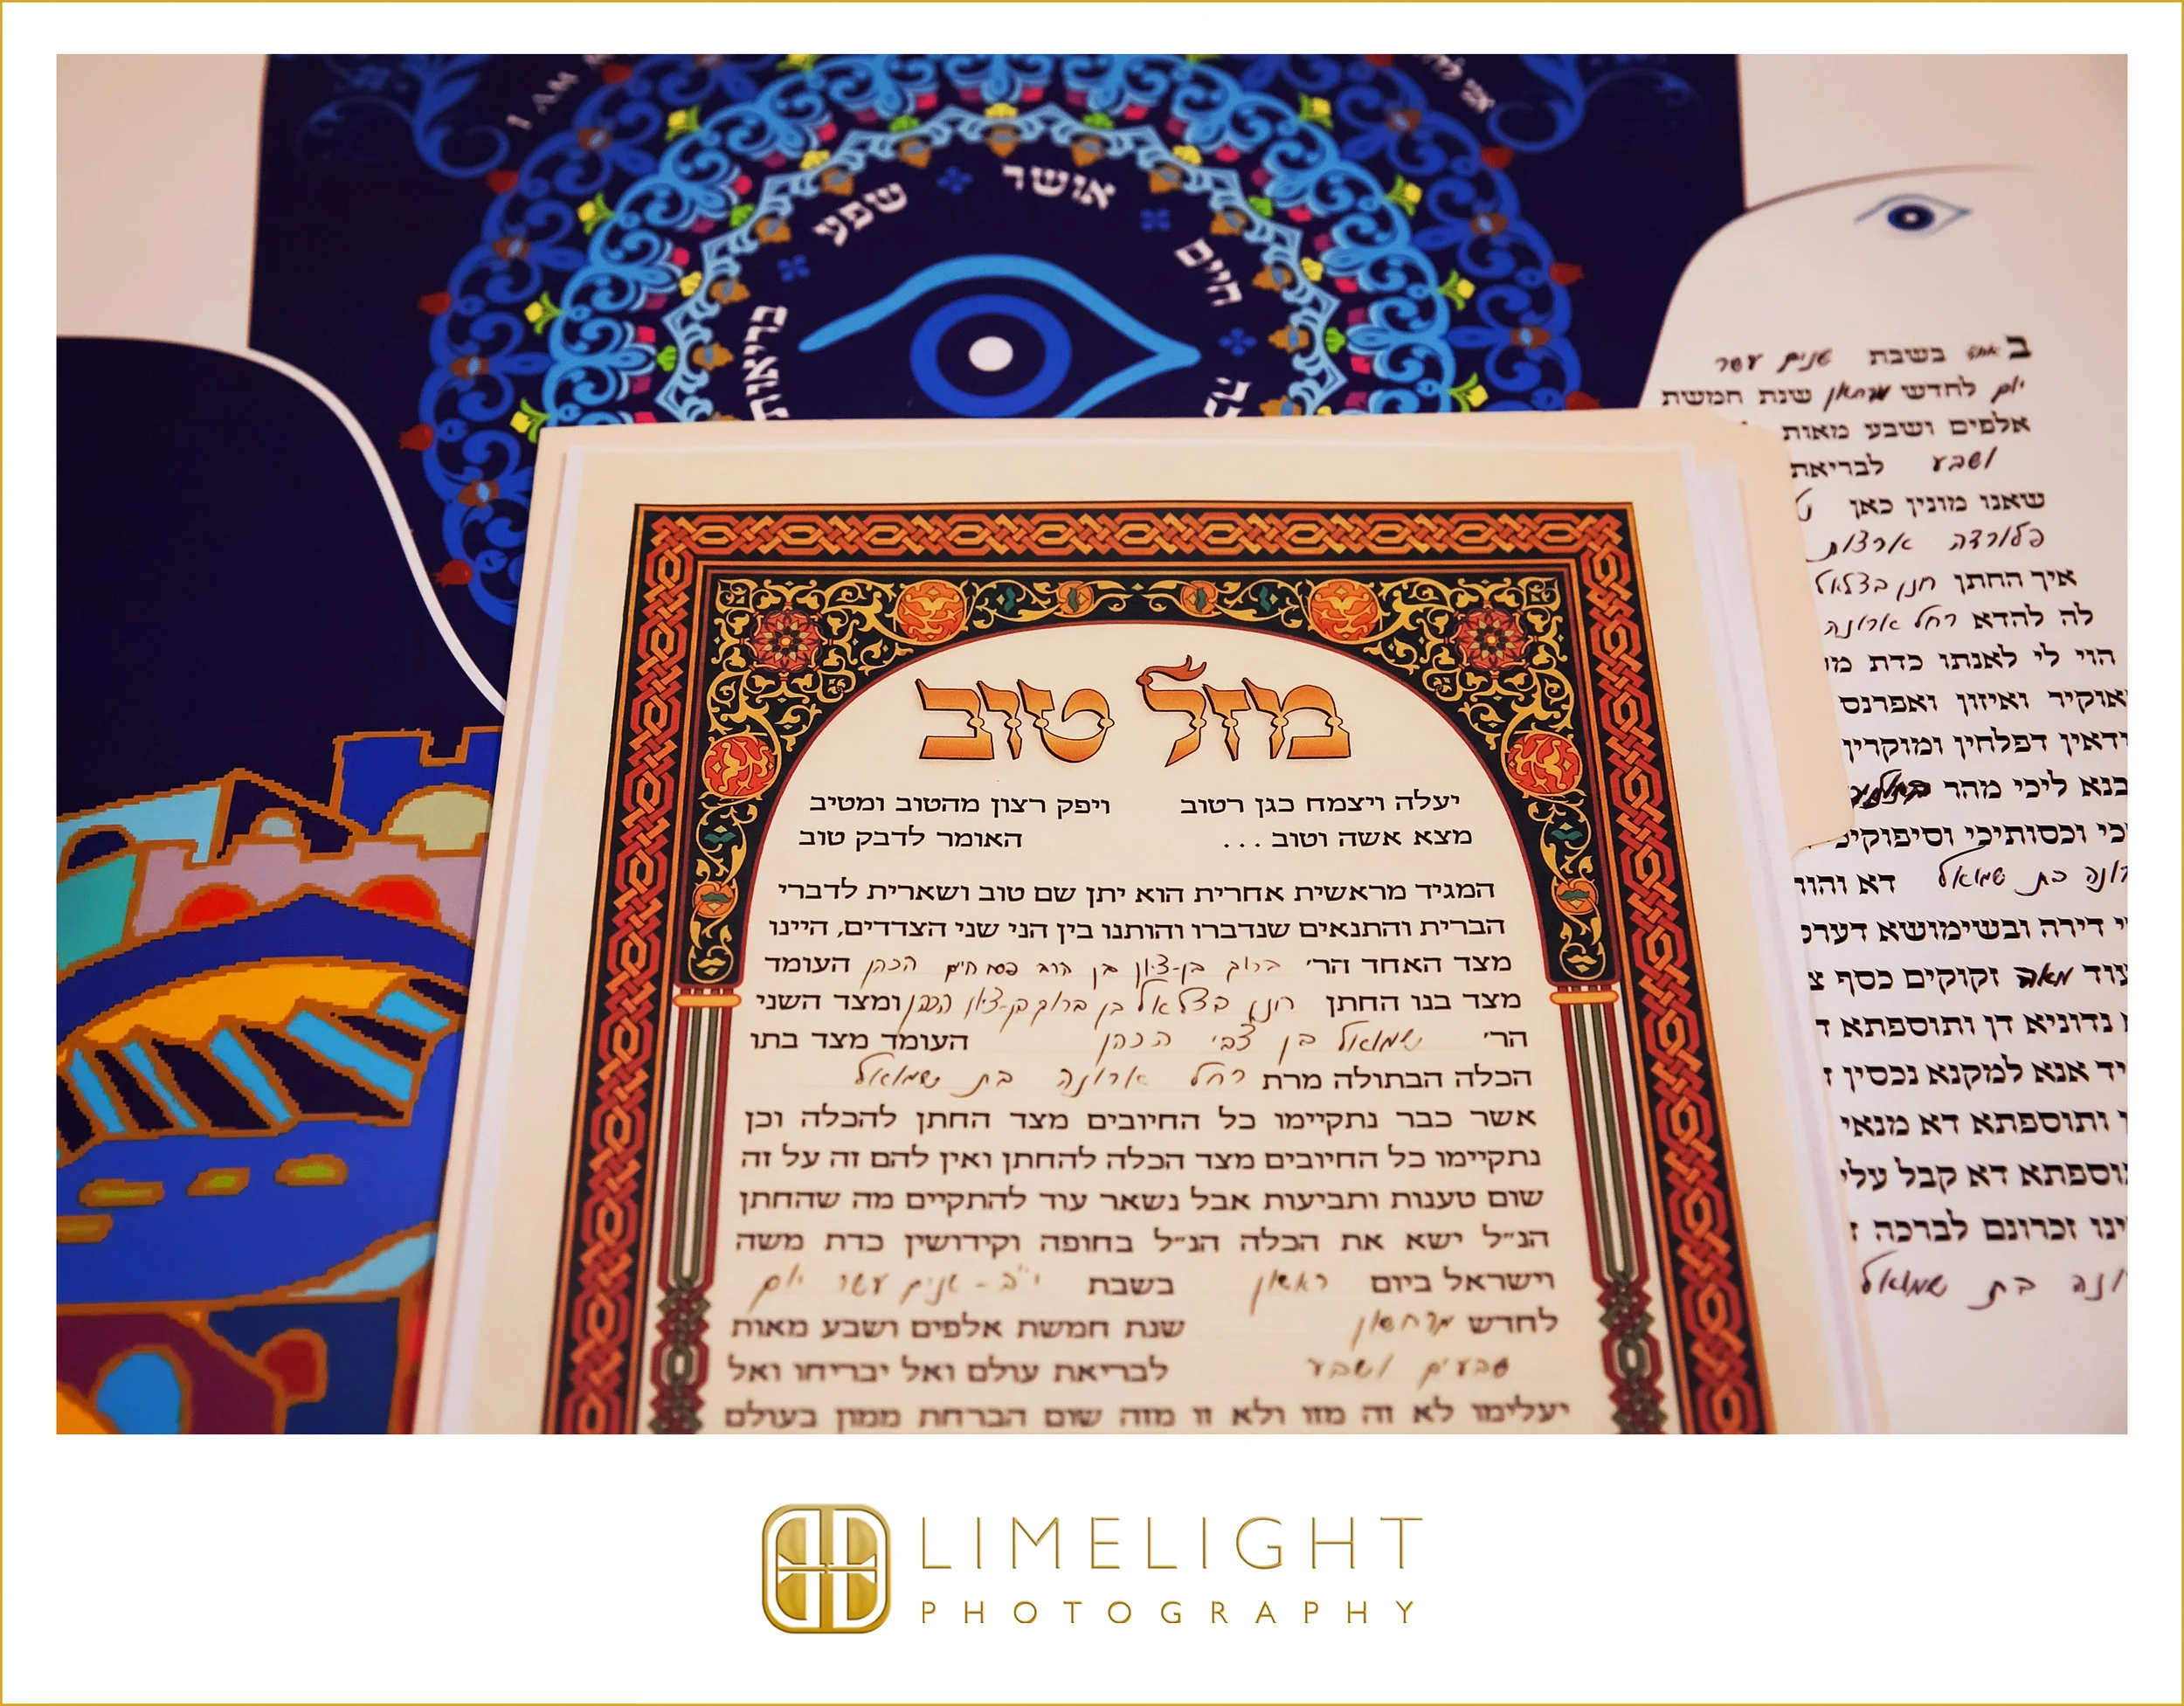 I AM
אני לדודי
שפע
אושר
חיים
בריאות
מזל טוב
יעלה ויצמח כגן רטוב ויפק רצון מהטוב ומטיב
מצא אשה וטוב ... האומר לדבק טוב
המגיד מראשית אחרית הוא יתן שם טוב ושארית לדברי
הברית והתנאים שנדברו והותנו בין הני שני הצדדים, היינו
מצד האחד הר׳ ברוך בן-ציון בן הרב פסח חיים הכהן העומד
מצד בנו החתן חנן בצלאל בן ברוך בן-ציון הכהן ומצד השני
הר׳ שמואל בן צבי הכהן העומד מצד בתו
הכלה הבתולה מרת רחל ארונה בת שמואל
אשר כבר נתקיימו כל החיובים מצד החתן להכלה וכן
נתקיימו כל החיובים מצד הכלה להחתן ואין להם זה על זה
שום טענות ותביעות אבל נשאר עוד להתקיים מה שהחתן
הנ״ל ישא את הכלה הנ״ל בחופה וקידושין כדת משה
וישראל ביום ראשון בשבת י״ב - שנים עשר יום
לחדש מרחשון שנת חמשת אלפים ושבע מאות
שבעים ושבע לבריאת עולם ואל יבריחו ואל
יעלימו לא זה מזו ולא זו מזה שום הברחת ממון בעולם
ב אחד בשבת שנים עשר
יום לחדש מרחשון שנת חמשת
אלפים ושבע מאות
ושבע לבריאת
שאנו מונין כאן
פלורדה ארצות
איך החתן חנן בצלאל
לה להדא רחל ארונה
הוי לי לאנתו כדת
אוקיר ואיזון ואפרנס
דפלחין ומוקרין
ליכי מהר
וכסותיכי וסיפוקיכי
ארונה בת שמואל דא והות
דירה ובשימושא דערס
מאה זקוקים כסף
נדוניא דן ותוספתא
אנא למקנא נכסין
ותוספתא דא מנאי
ותוספתא דא קבל עליו
זכרונם לברכה
בת שמואל
LIMELIGHT
PHOTOGRAPHY